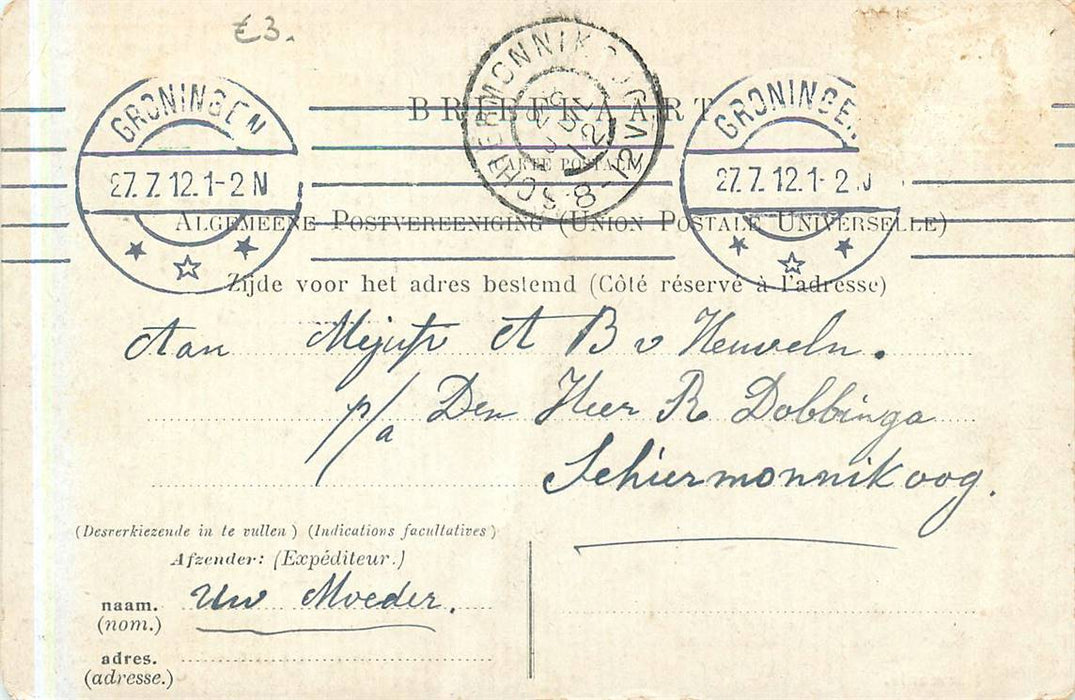 £3.
BRIEFKAART
GRONINGEN
27.7.12.1-2N
SCHIERMONNIKOOG
8-12V
GRONINGEN
27.7.12.1-2N
(CARTE POSTALE)
ALGEMEENE POSTVEREENIGING (UNION POSTALE UNIVERSELLE)
Zijde voor het adres bestemd (Côté réservé à l'adresse)
Aan Mejufr A B v Heuveln.
p/a Den Heer R Dobbinga
Schiermonnikoog.
(Desverkiezende in te vullen) (Indications facultatives)
Afzender: (Expéditeur.)
naam. Uw Moeder.
(nom.)
adres.
(adresse.)